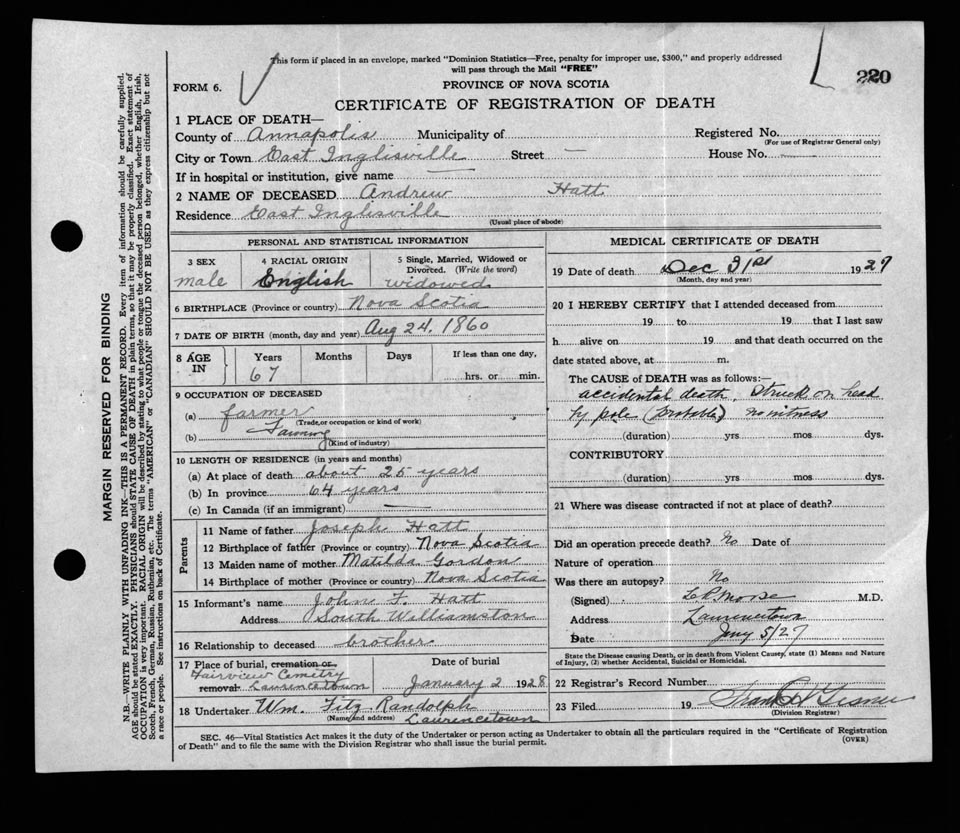 This form if placed in an envelope, marked "Dominion Statistics—Free, penalty for improper use, $300," and properly addressed
will pass through the Mail "FREE"
220
FORM 6.
PROVINCE OF NOVA SCOTIA
CERTIFICATE OF REGISTRATION OF DEATH
1 PLACE OF DEATH—
County of Annapolis Municipality of Registered No.
(For use of Registrar General only)
City or Town East Inglisville Street — House No. —
If in hospital or institution, give name —
2 NAME OF DECEASED Andrew Hatt
Residence East Inglisville
(Usual place of abode)
PERSONAL AND STATISTICAL INFORMATION
3 SEX
male
4 RACIAL ORIGIN
English
5 Single, Married, Widowed or
Divorced. (Write the word)
widowed
6 BIRTHPLACE (Province or country) Nova Scotia
7 DATE OF BIRTH (month, day and year) Aug 24, 1860
8 AGE
IN
Years
67
Months
Days
If less than one day,
hrs. or min.
9 OCCUPATION OF DECEASED
(a) farmer
(Trade, or occupation or kind of work)
(b) Farming
(Kind of industry)
10 LENGTH OF RESIDENCE (in years and months)
(a) At place of death about 25 years
(b) In province 64 years
(c) In Canada (if an immigrant) —
Parents
11 Name of father Joseph Hatt
12 Birthplace of father (Province or country) Nova Scotia
13 Maiden name of mother Matilda Gordon
14 Birthplace of mother (Province or country) Nova Scotia
15 Informant's name John F. Hatt
Address South Williamston
16 Relationship to deceased brother
17 Place of burial, cremation or
Fairview Cemetry
removal Laurencetown
Date of burial
January 2 1928
18 Undertaker Wm. Fitz Randolph
(Name and address) Laurencetown
MEDICAL CERTIFICATE OF DEATH
19 Date of death Dec 31st 1927
(Month, day and year)
20 I HEREBY CERTIFY that I attended deceased from
19 to 19 that I last saw
h alive on 19 and that death occurred on the
date stated above, at m.
The CAUSE of DEATH was as follows:—
accidental death, Struck on head
by pole (probable) no witness
(duration) yrs mos dys.
CONTRIBUTORY
(duration) yrs mos dys.
21 Where was disease contracted if not at place of death?
Did an operation precede death? No Date of
Nature of operation
Was there an autopsy? No
(Signed) Morse M.D.
Address Laurencetown
Date Jany 5/27
State the Disease causing Death, or in death from Violent Causes, state (1) Means and Nature
of Injury, (2) whether Accidental, Suicidal or Homicidal.
22 Registrar's Record Number
23 Filed 19
(Division Registrar)
SEC. 46—Vital Statistics Act makes it the duty of the Undertaker or person acting as Undertaker to obtain all the particulars required in the "Certificate of Registration
of Death" and to file the same with the Division Registrar who shall issue the burial permit.
(OVER)
MARGIN RESERVED FOR BINDING
N.B.—WRITE PLAINLY WITH UNFADING INK—THIS IS A PERMANENT RECORD. Every item of information should be carefully supplied.
AGE should be stated EXACTLY. PHYSICIANS should STATE CAUSE OF DEATH in plain terms, so that it may be properly classified. Exact statement of
OCCUPATION is very important. RACIAL ORIGIN will be described by stating to what people or tongue the deceased person belonged, whether English, Irish,
Scotch, French, German, Russian, Ruthenian, etc. The terms "AMERICAN" or "CANADIAN" SHOULD NOT BE USED as they express citizenship but not
a race or people. See instructions on back of Certificate.